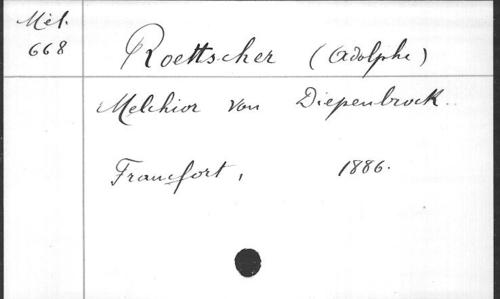 Mél.
668
Roettscher (Adolphe)
Melchior von Diepenbrock.
Francfort, 1886.